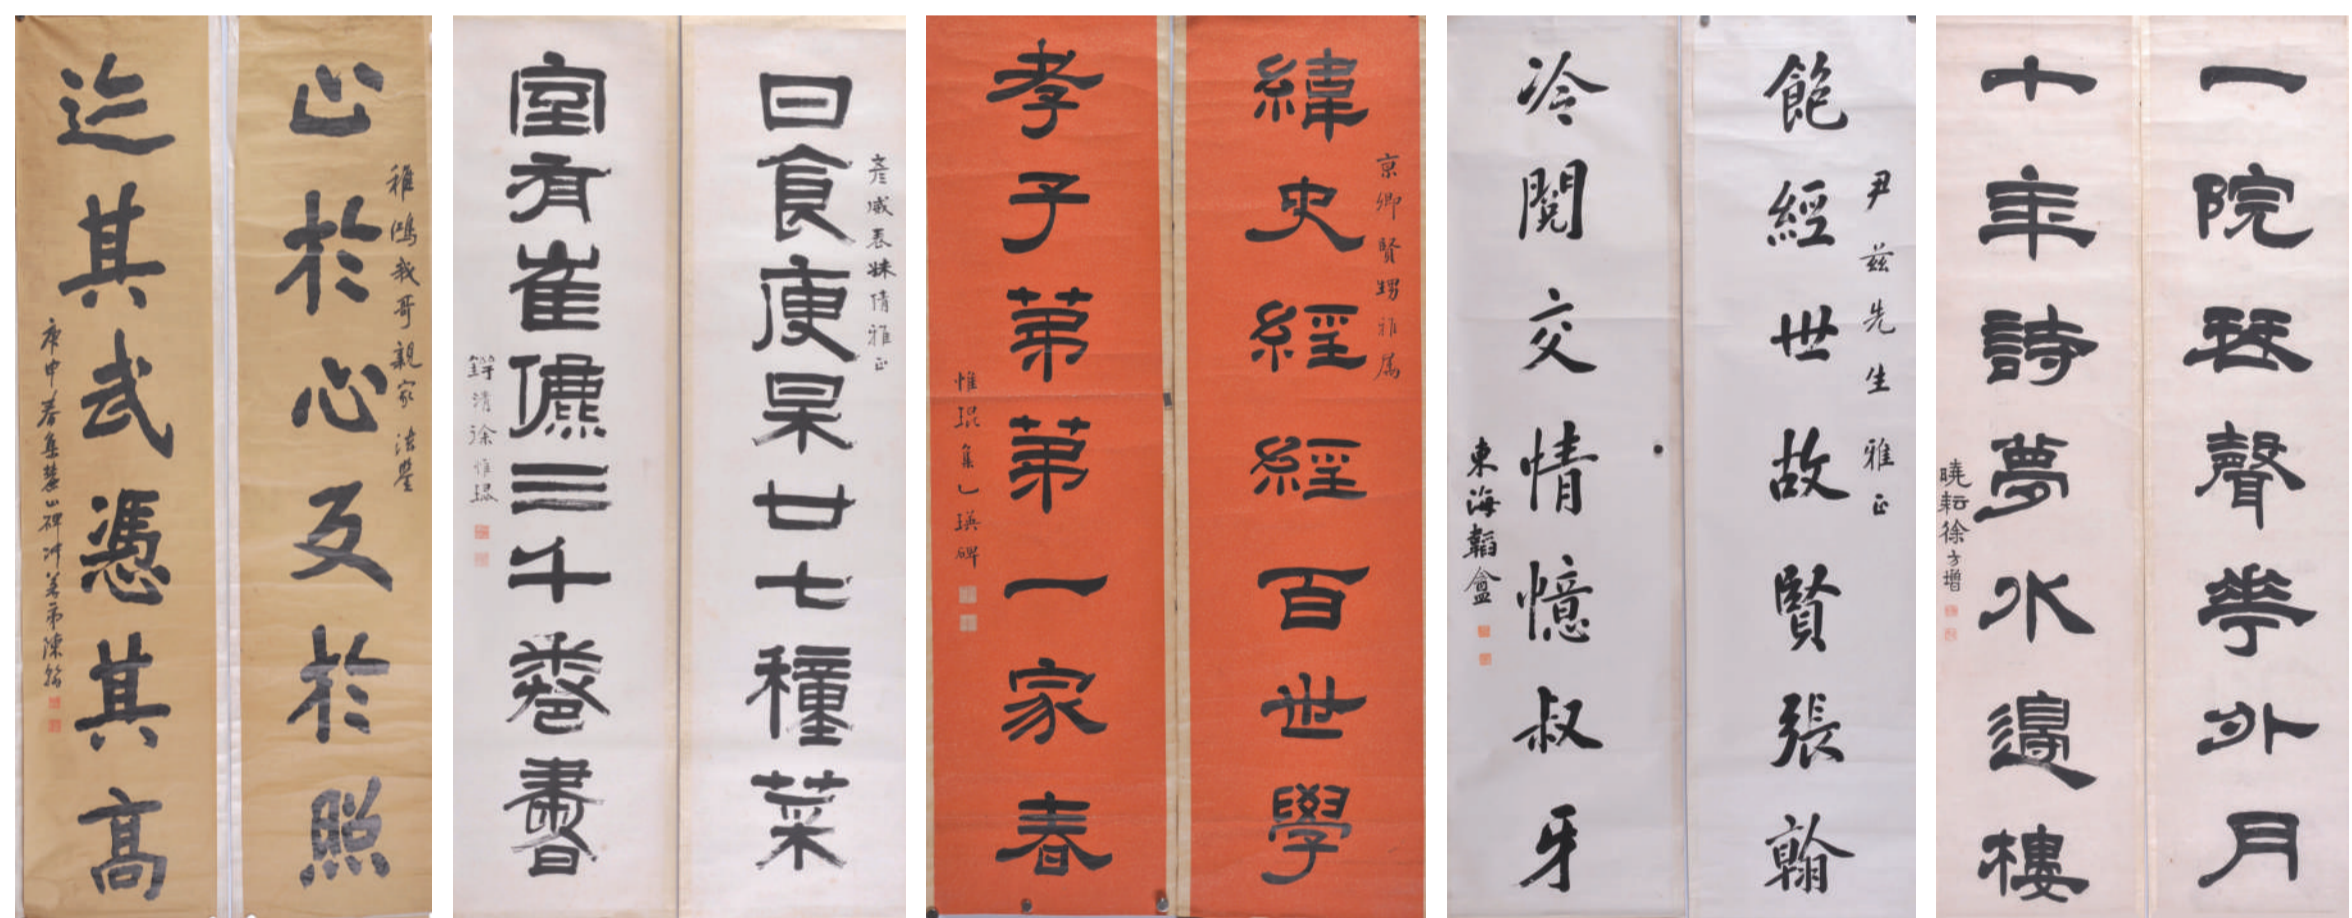 止於心反於照
稚鴻我哥親家 法鑒
迄其武憑其高
庚申春集華山碑
日食庾杲廿七種菜
彥威表妹倩雅正
室有崔儦三千卷書
清徐惟琨
緯史經經百世學
京卿賢甥雅屬
孝子弟弟一家春
惟琨集乙瑛碑
飽經世故賢張翰
尹茲先生雅正
冷閱交情憶叔牙
東海韜盦
一院琴聲華外月
十年詩夢水邊樓
曉耘徐方增